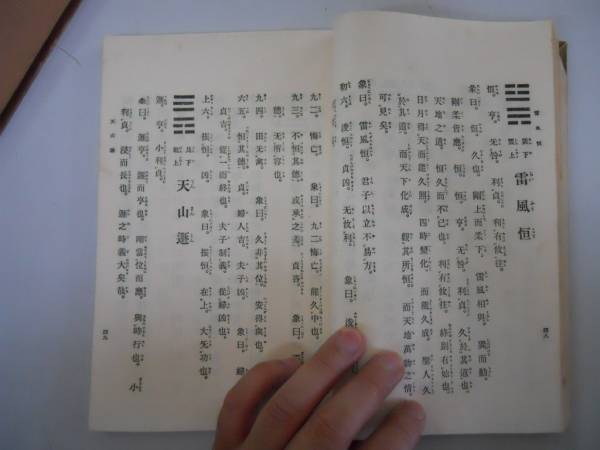 雷風恒
巽下
震上
雷風恒
恒。亨。无咎。利貞。利有攸往。
彖曰。恒。久也。剛上而柔下。雷風相與。巽而動。
剛柔皆應。恒。恒。亨。无咎。利貞。久於其道也。
天地之道。恒久而不已也。利有攸往。終則有始也。
日月得天而能久照。四時變化。而能久成。聖人久
於其道。而天下化成。觀其所恒。而天地萬物之情。
可見矣。
象曰。雷風恒。君子以立不易方。
初六。浚恒。貞凶。无攸利。象曰。浚
四八
九二。悔亡。象曰。九二悔亡。能久中也。
九三。不恒其德。或承之羞。貞吝。象曰。不
德。无所容也。
九四。田无禽。象曰。久非其位。安得禽也。
六五。恒其德。貞。婦人吉。夫子凶。象曰。婦
貞吉。從一而終也。夫子制義。從婦凶也。
上六。振恒。凶。象曰。振恒。在上。大无功也。
艮下
乾上
天山遯
遯。亨。小利貞。
彖曰。遯。亨。遯而亨也。剛當位而應。與時行也。小
利貞。浸而長也。遯之時義大矣哉。
天山遯
四九